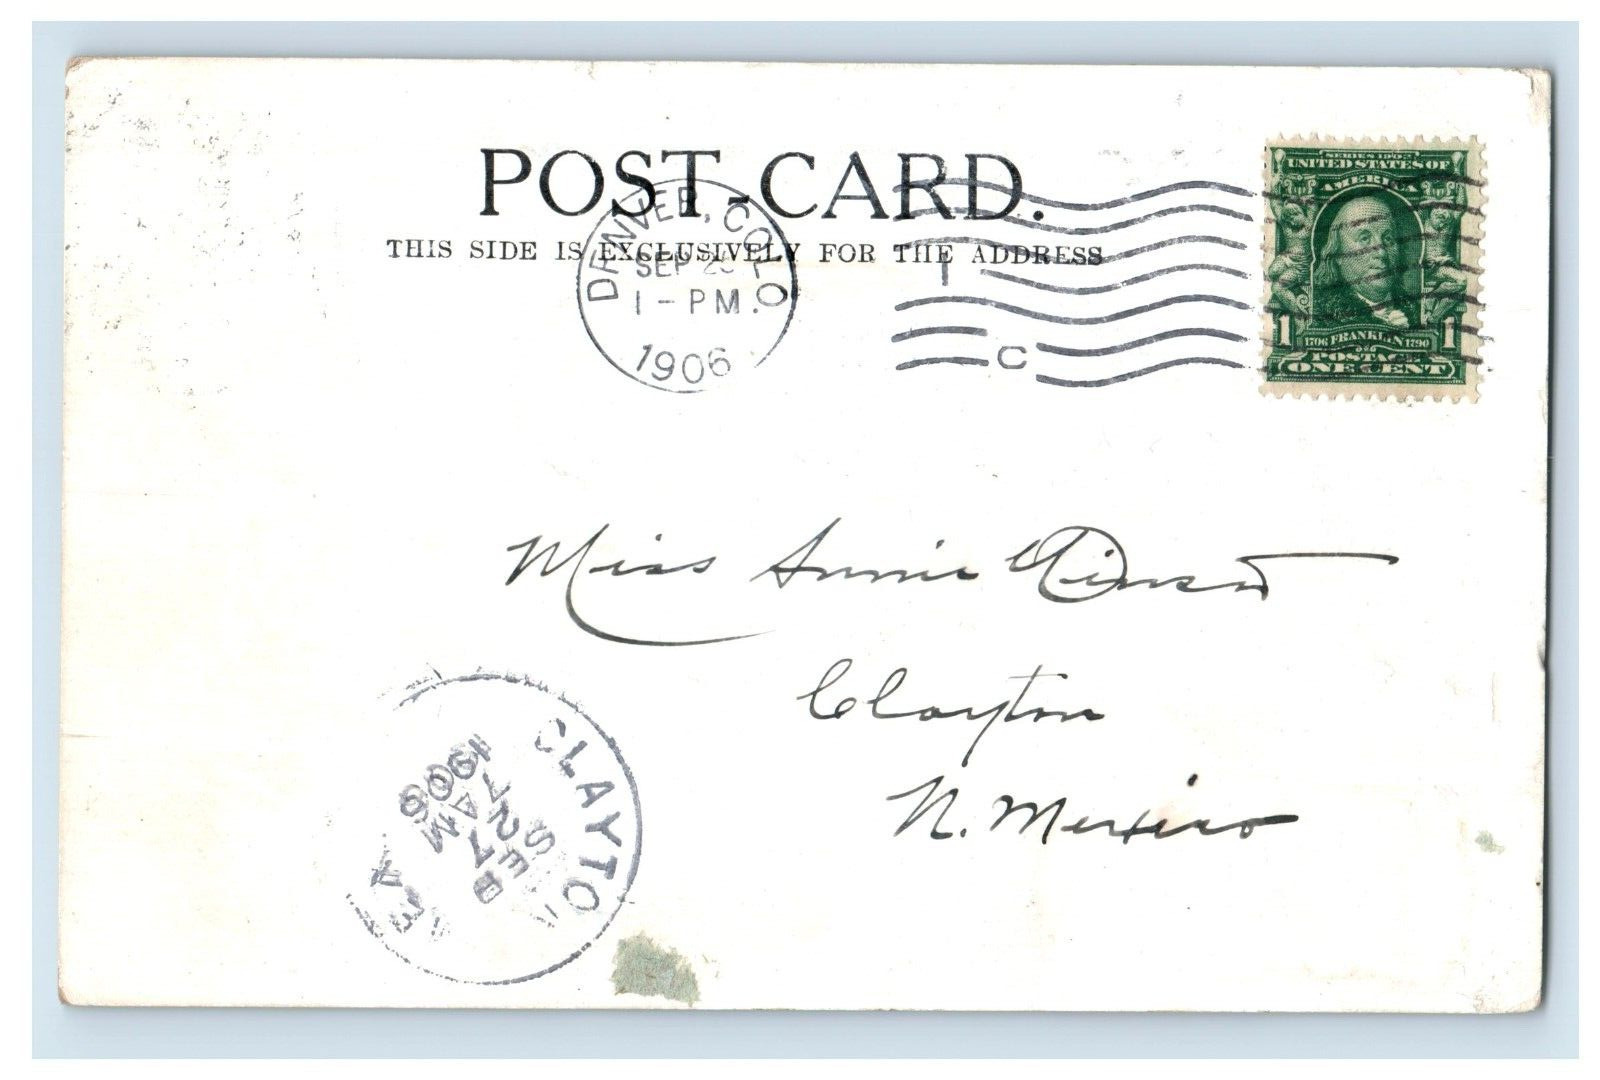 POST-CARD.
THIS SIDE IS EXCLUSIVELY FOR THE ADDRESS
DENVER, COLO
SEP
1-PM.
1906
C
SERIES 1902
UNITED STATES OF
AMERICA
1 1706 FRANKLIN 1790 1
POSTAGE
ONE CENT
Miss Annie
Clayton
N. Mexico
CLAYTON
SEP
27
7 AM
1906